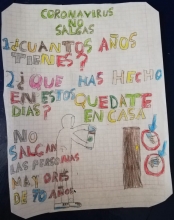 CORONAVIRUS
NO
SALGAS
1¿CUÁNTOS AÑOS
TIENES?
2¿QUE HAS HECHO
EN ESTOS
DIAS?
QUEDATE
EN CASA
NO
SALGAN
LAS PERSONAS
MAYORES
DE 70 AÑOS.